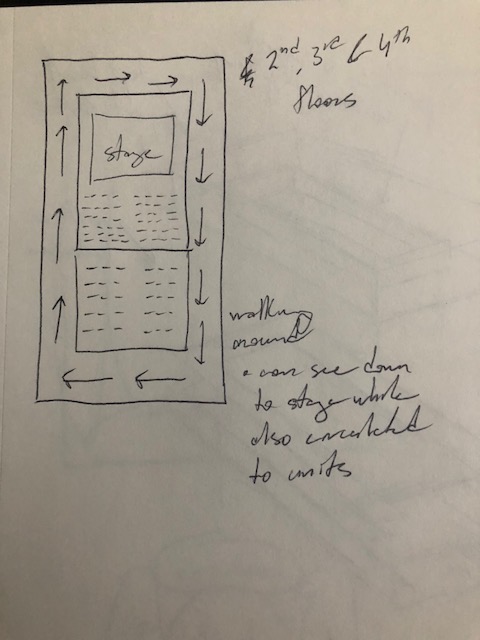 2nd, 3rd & 4th
floors
stage
walking
around
• can see down
to stage while
also
to units